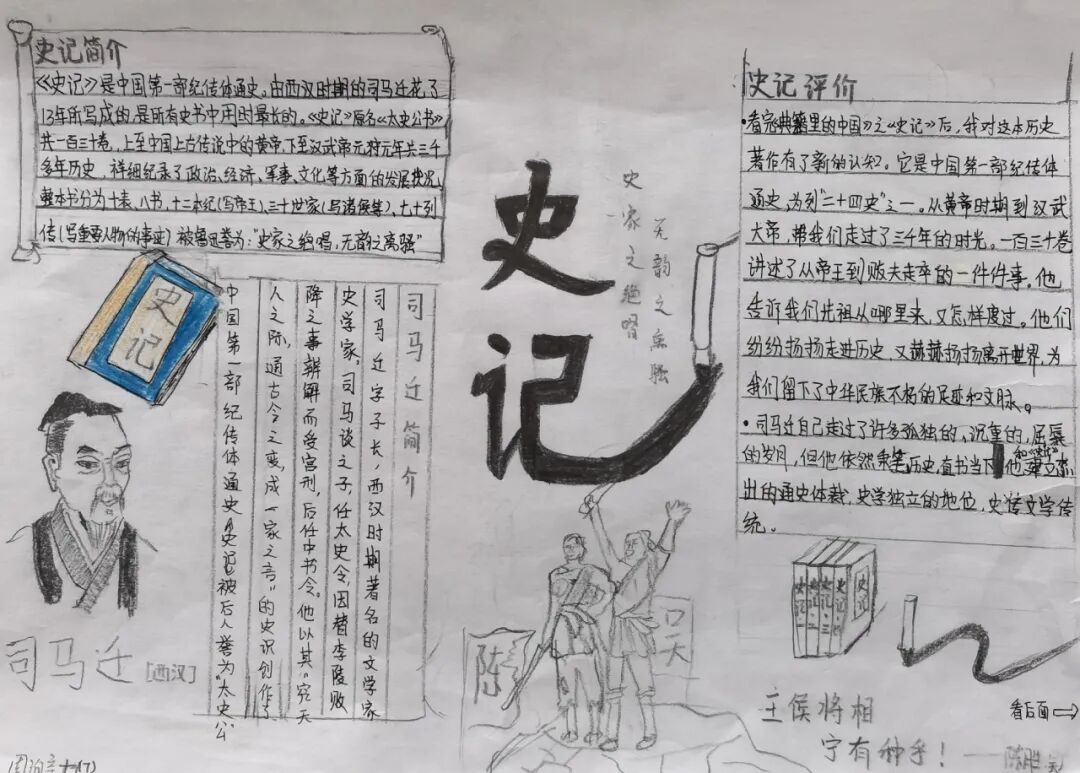 史记简介
《史记》是中国第一部纪传体通史。由西汉时期的司马迁花了
13年所写成的,是所有史书中用时最长的。《史记》原名《太史公书》
共一百三十卷,上至中国上古传说中的黄帝,下至汉武帝元狩元年共三千
多年历史 详细纪录了政治、经济、军事、文化等方面的发展状况
整本书分为十表、八书,十二本纪(写帝王)、三十世家(写诸侯等),七十列
传(写重要人物的事迹) 被鲁迅誉为:“史家之绝唱,无韵之离骚”
史记
司马迁
[西汉]
司马迁简介
司马迁字子长,西汉时期著名的文学家
史学家,司马谈之子,任太史令,因替李陵败
降之事辩解而受宫刑,后任中书令。他以其“究天
人之际,通古今之变,成一家之言”的史识创作了
中国第一部纪传体通史《史记》被后人誉为“太史公
史记
史家之绝唱
无韵之离骚
陈
口天
史记评价
•看完典籍里的中国》之《史记》后,我对这本历史
著作有了新的认知。它是中国第一部纪传体
通史,为列“二十四史”之一。从黄帝时期到汉武
大帝,带我们走过了三千年的时光。一百三十卷
讲述了从帝王到贩夫走卒的一件件事。他
告诉我们先祖从哪里来,又怎样度过。他们
纷纷扬扬走进历史,又赫赫扬扬离开世界,为
我们留下了中华民族不朽的足迹和文脉。
•司马迁自己走过了许多孤独的、沉重的,屈辱
的岁月,但他依然秉笔历史,直书当下
出的通史体裁,史学独立的地位,史传文学传
统。
史记
史记一
史记二
史记三
史记
王侯将相
宁有种乎!——陈胜
看后面